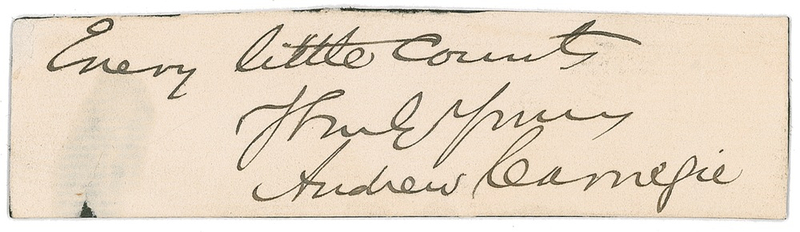 Every little Counts
Truly Yours
Andrew Carnegie